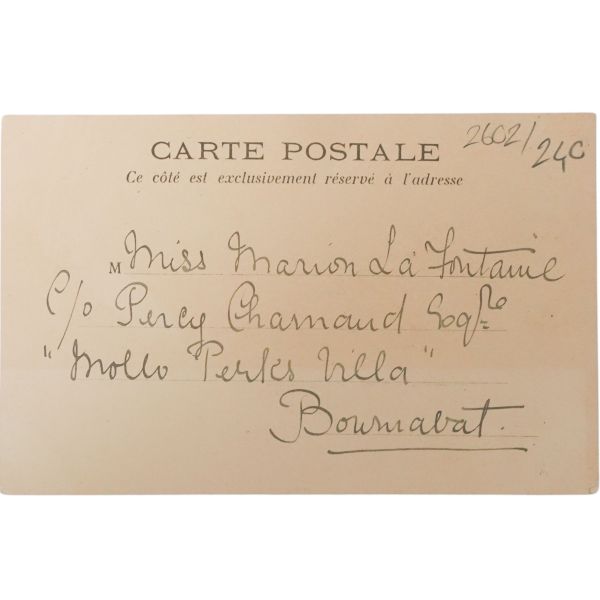 CARTE POSTALE
2602/240
Ce côté est exclusivement réservé à l'adresse
M Miss Marion La Fontaine
C/o Percy Charnaud Esqre
"Mollo Perks Villa"
Bournabat.